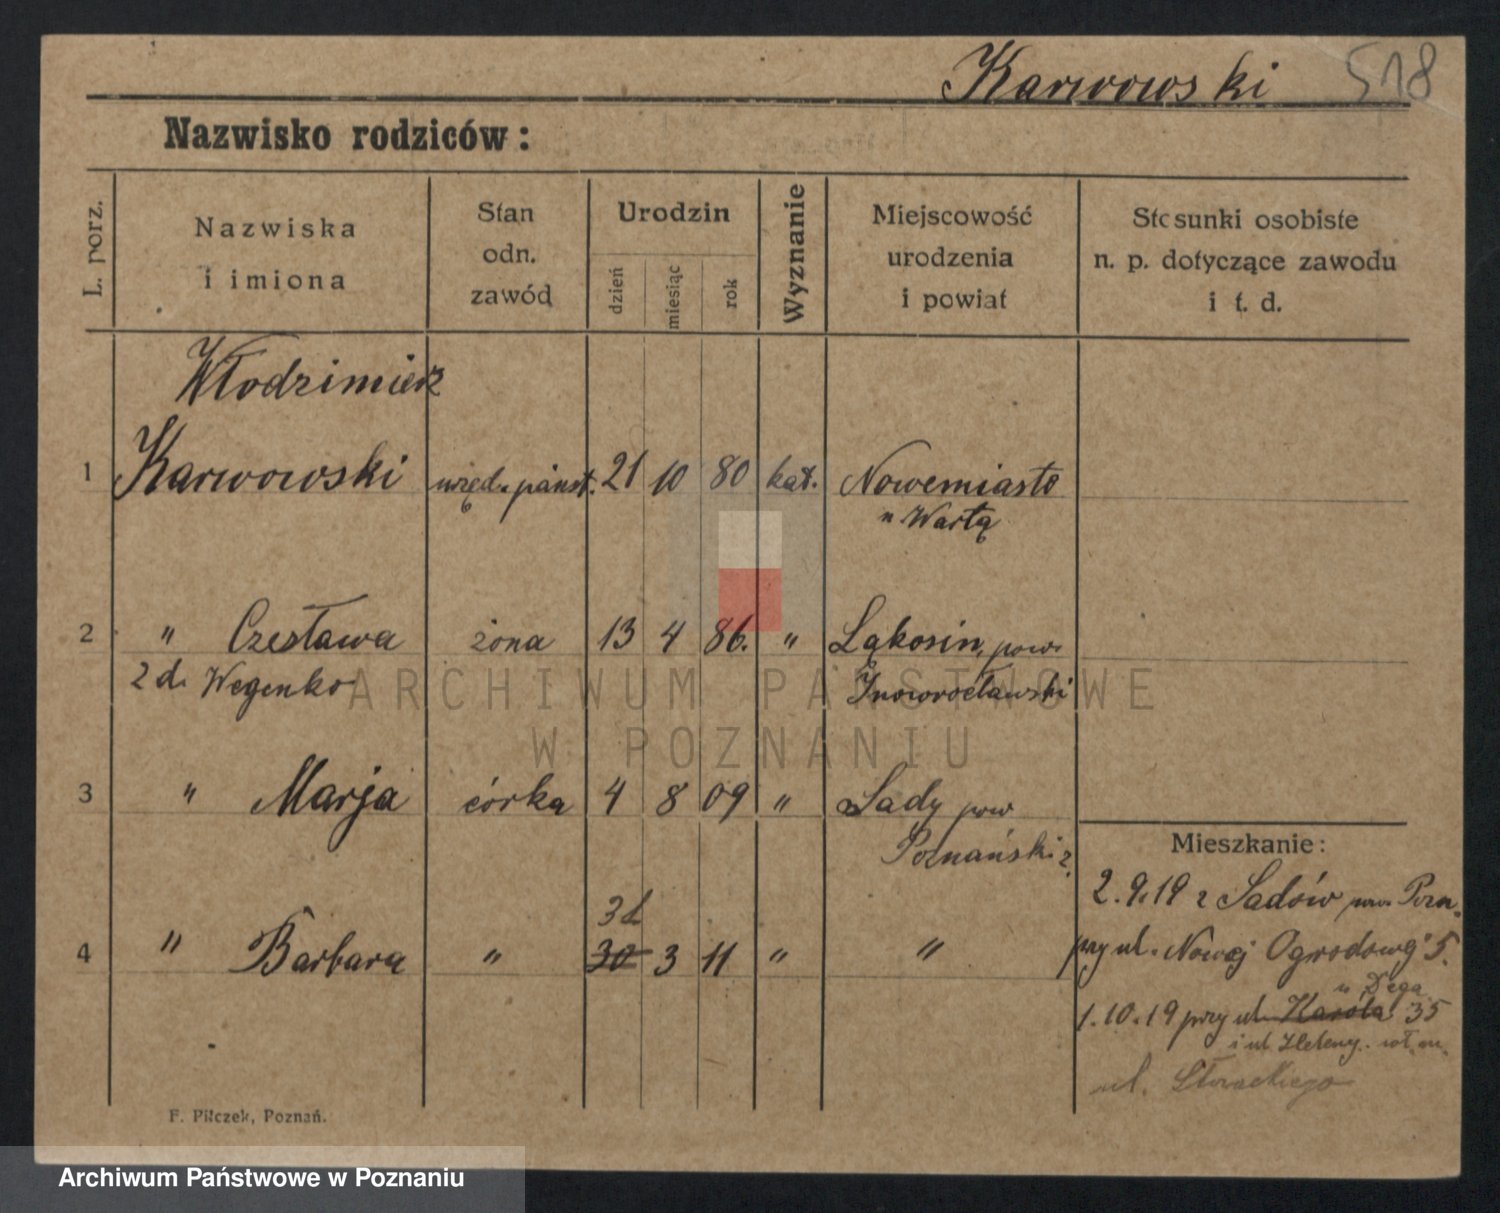 Karwowski 518
Nazwisko rodziców:
L. porz.
Nazwiska
i imiona
Stan
odn.
zawód
Urodzin
dzień
miesiąc
rok
Wyznanie
Miejscowość
urodzenia
i powiat
Stosunki osobiste
n. p. dotyczące zawodu
i t. d.
Włodzimierz
1 Karwowski urzęd. państ. 21 10 80 kat. Nowemiasto
n Wartą
2 " Czesława żona 13 4 86. " Łąkosin, pow.
2 d. Wegenko Inowrocławski
3 " Marja córka 4 8 09 " Sady pow
Poznański
31
4 " Barbara " 30 3 11 " "
Mieszkanie:
2.9.19 z Sadów pow. Pozn.
przy ul. Nowej Ogrodowej 5.
1.10.19 przy ul. Karola 35
i ul Heleny.
ul. Słowackiego
F. Pilczek, Poznań.
ARCHIWUM PAŃSTWOWE
W POZNANIU
Archiwum Państwowe w Poznaniu